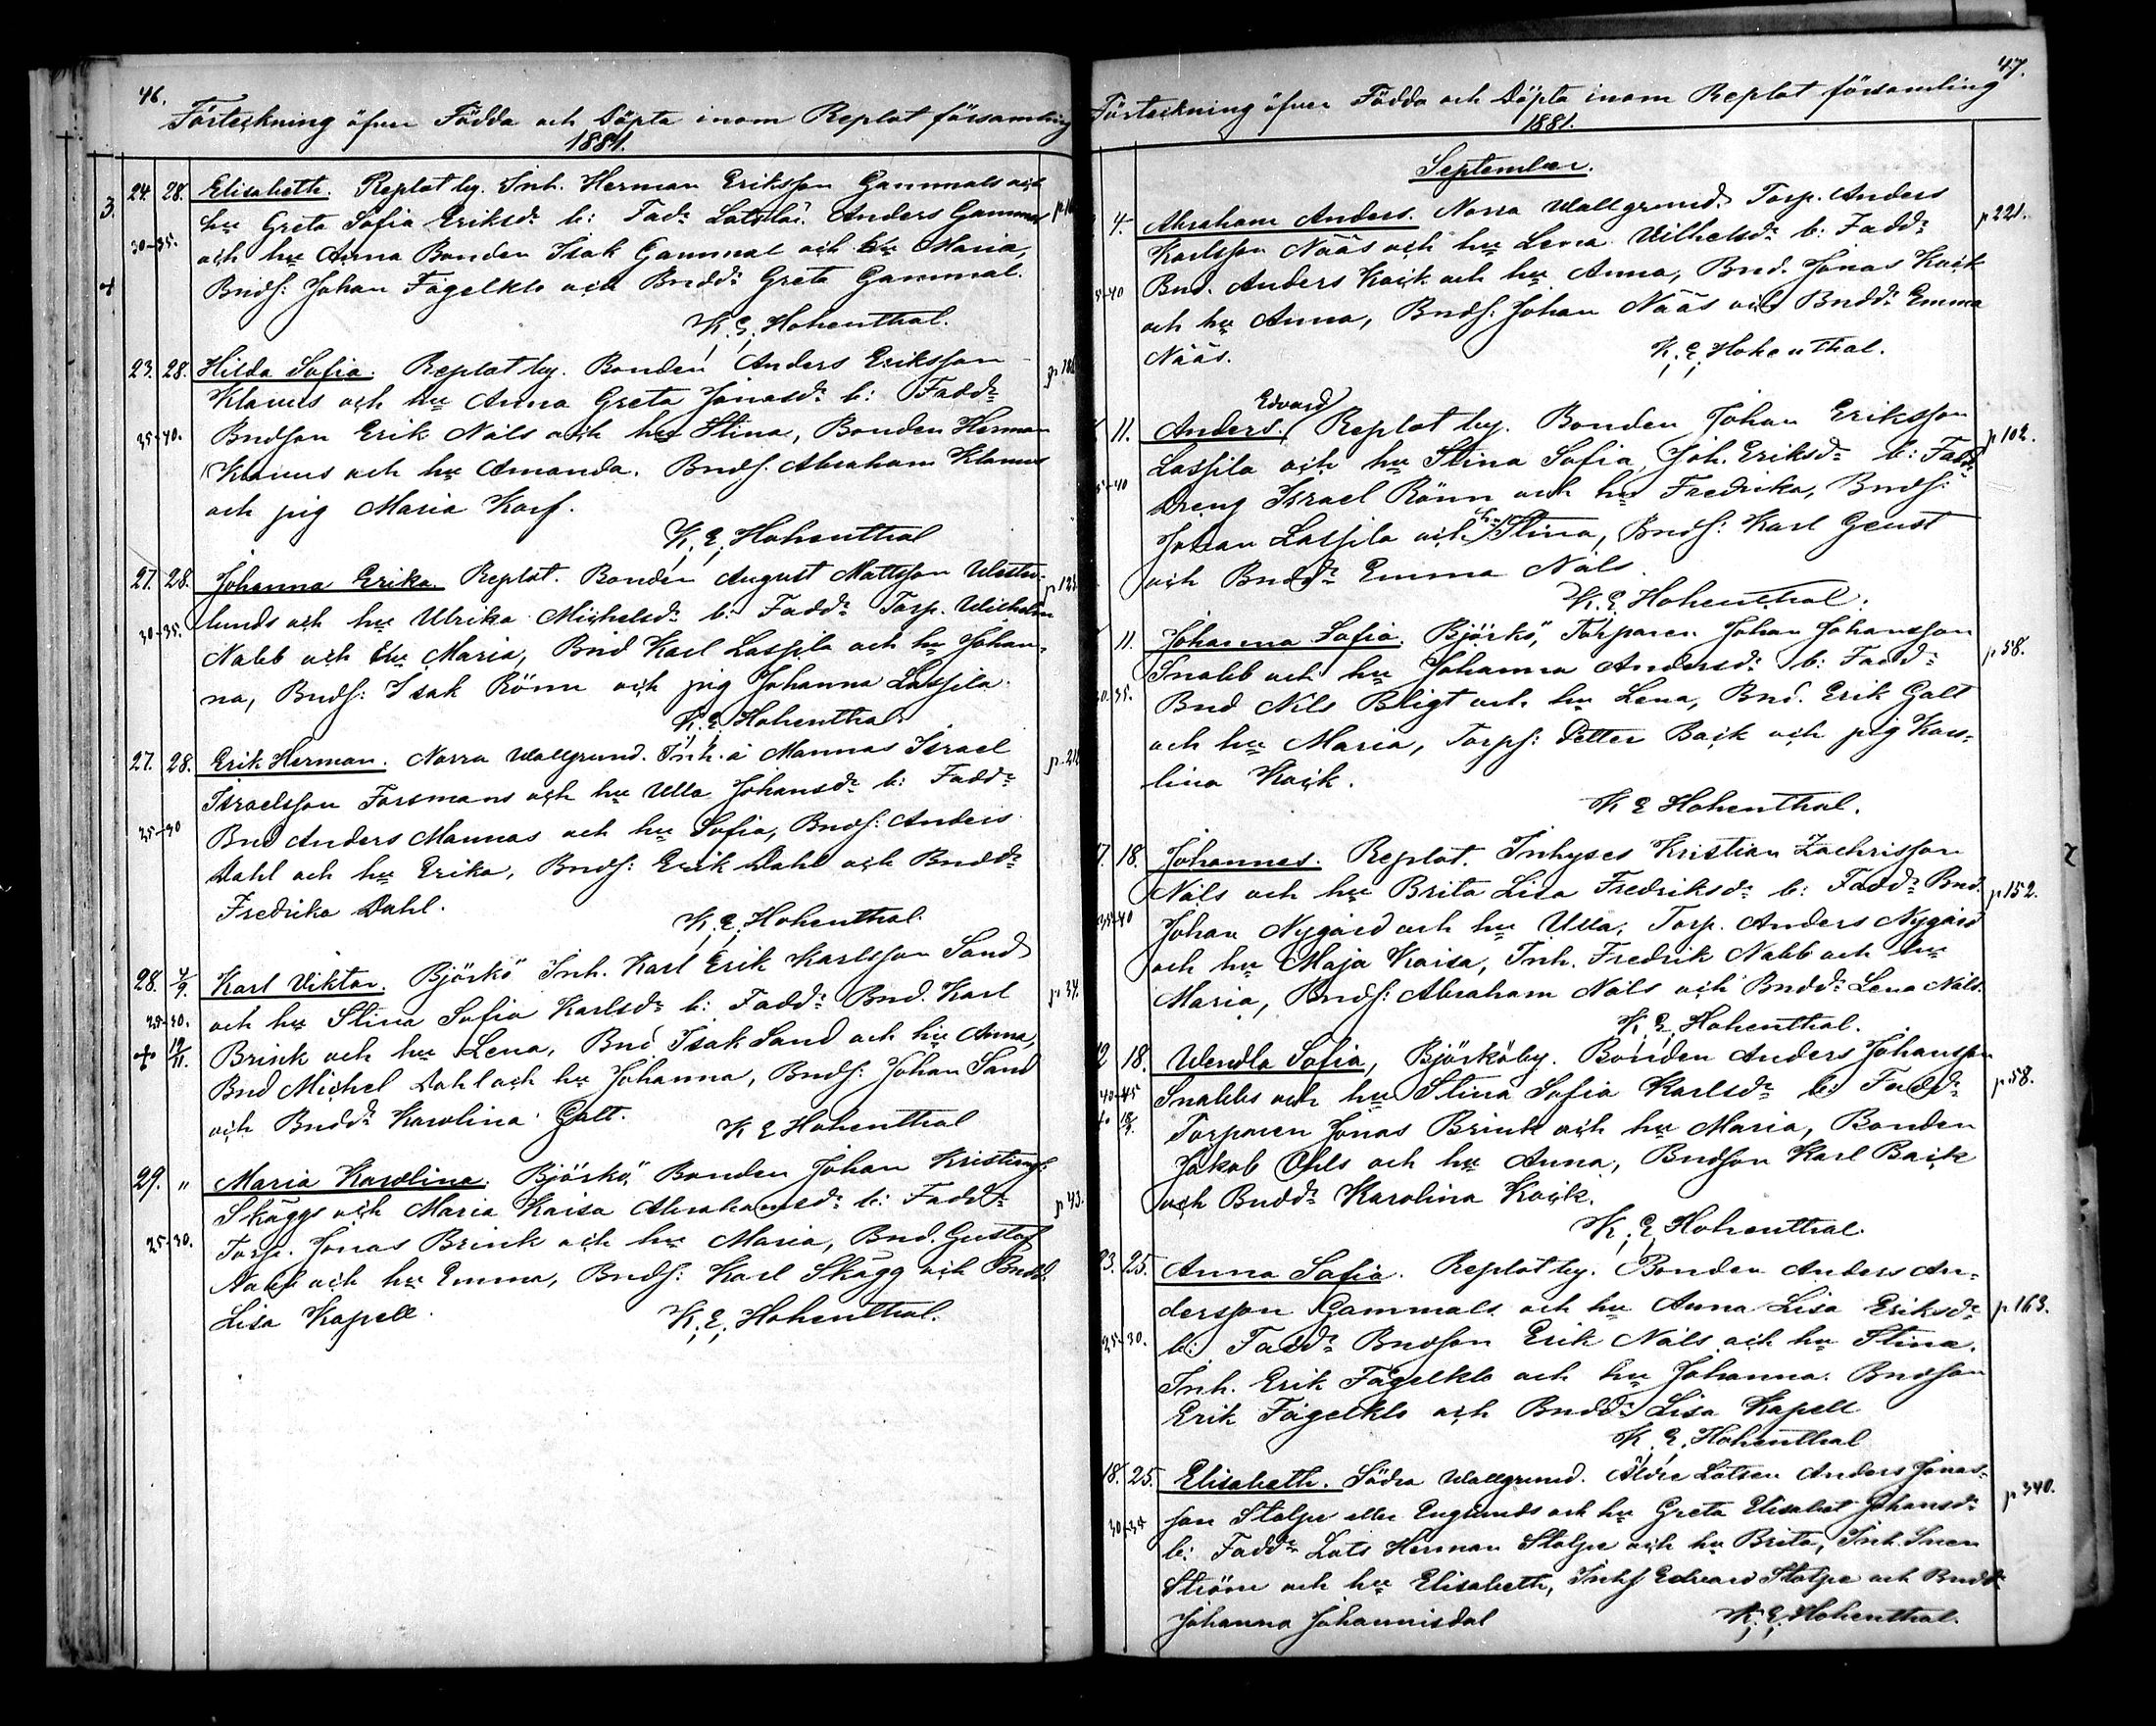 46.
Förteckning öfver Födda och Döpta inom Replot församling
1881.
3. 24. 28. Elisabeth. Replot by. Inh. Herman Eriksson Gammals och
hu Greta Sofia Eriksdr b: Fadr Anders Gammal
30-35. och hu Anna Bonden Isak Gammal och hu Maria,
+ Bnds: Johan Fogelklo och Bndd: Greta Gammal.
K. E. Hohenthal.
23. 28. Hilda Sofia. Replot by. Bonden Anders Eriksson
Klamus och hu Anna Greta Jonasdr b: Faddr
35-40. Bndson Erik Näls och hu Stina, Bonden Herman
Klamus och hu Amanda. Bnds. Abraham Klamus
och pig Maria Korf.
K. E. Hohenthal
27. 28. Johanna Erika. Replot. Bonden August Mattsson Wester-
lunds och hu Ulrika Michelsdr b: Faddr Torp. Wilhelm
30-35. Nabb och hu Maria, Bnd Karl Lassila och hu Johan-
na, Bnds: Isak Rönn och pig Johanna Lassila.
K. E. Hohenthal
27. 28. Erik Herman. Norra Wallgrund. Inh. å Mannas Israel
Israelsson Forsmans och hu Ulla Johansdr b: Faddr
25-30 Bnd Anders Mannas och hu Sofia, Bnds: Anders
Dahl och hu Erika, Bnds: Erik Dahl och Bnddr
Fredrika Dahl.
K. E. Hohenthal.
28. 4/9. Karl Viktor. Björkö Inh. Karl Erik Karlsson Sand p 34.
och hu Stina Sofia Karlsdr b: Faddr Bnd. Karl
25-30. Brink och hu Lena, Bnd Isak Sand och hu Anna,
+ 19/11. Bnd Michel Dahl och hu Johanna, Bnds: Johan Sand
och Bnddr Karolina Galt.
K E Hohenthal
29. " Maria Karolina. Björkö, Bonden Johan Kristians:
Skäggs och Maria Kaisa Abrahamsdr b: Faddr p 43.
25-30. Torp. Jonas Brink och hu Maria, Bnd. Gustaf
Nabb och hu Emma, Bnds: Karl Skägg och Bndd.
Lisa Kapell.
K. E. Hohenthal.
47.
Förteckning öfver Födda och Döpta inom Replot församling
1881.
September.
4. Abraham Anders. Norra Wallgrund. Torp. Anders p 221.
Karlsson Nääs och hu Lena Vilhelsdr b: Faddr
-40 Bnd. Anders Kack och hu Anna, Bnd. Jonas Kack
och hu Anna, Bnds: Johan Nääs och Bnddr Emma
Nääs.
K. E. Hohenthal.
Edvard
11. Anders. Replot by. Bonden Johan Eriksson p 102.
Lassila och hu Stina Sofia Joh. Eriksdr b: Faddr
-40 Dreng Israel Rönn och hu Fredrika, Bnds:
Johan Lassila och hu Stina, Bnds: Karl Geust
och Bnddr Emma Näls.
K. E. Hohenthal.
11. Johanna Sofia. Björkö, Torparen Johan Johansson p 58.
Snabb och hu Johanna Andersdr b: Faddr
30-35. Bnd Nils Bligt och hu Lena, Bnd. Erik Galt
och hu Maria, Torps: Petter Back och pig Karo-
lina Kack.
K E Hohenthal.
18. Johannes. Replot. Inhyses Kristian Zachrisson
Näls och hu Brita Lisa Fredriksdr b: Faddr Bnd. p 152.
35-40 Johan Nygård och hu Ulla, Torp. Anders Nygård
och hu Maja Kaisa, Inh. Fredrik Nabb och hu
Maria, Bnds: Abraham Näls och Bnddr Lena Näls.
K. E. Hohenthal.
12 18. Wendla Sofia, Björköby. Bonden Anders Johansson
40-45 Snabbs och hu Stina Sofia Karlsdr b: Faddr p 58.
Torparen Jonas Brink och hu Maria, Bonden
Jakob Ohls och hu Anna, Bndson Karl Back
och Bnddr Karolina Kack.
K. E. Hohenthal.
23. 25. Anna Sofia. Replot by. Bonden Anders An-
dersson Gammals och hu Anna Lisa Eriksdr p 163.
25-30. b: Faddr Bndson Erik Näls och hu Stina.
Inh. Erik Fågelklo och hu Johanna. Bndson
Erik Fågelklo och Bnddr Lisa Kapell
K. E. Hohenthal
18. 25. Elisabeth. Södra Wallgrund. Äldre Lotsen Anders Jonas-
30-35 son Stolpe eller Englunds och hu Greta Elisabet Johansdr p 340.
b: Faddr Lots Herman Stolpe och hu Brita, Inh. Sven
Ström och hu Elisabeth, Inhs Edvard Stolpe och Bnddr
Johanna Johannisdal
K. E. Hohenthal.